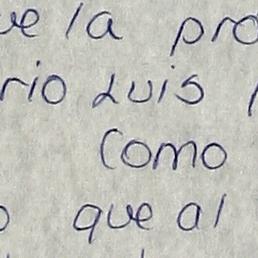 ue la pro
rio Luis
Como
o que al